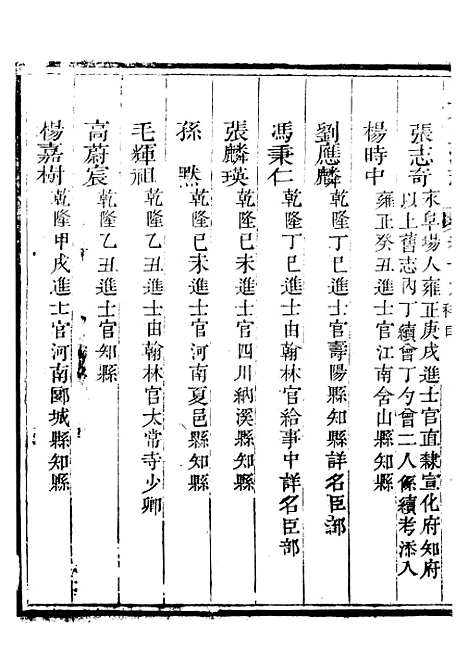 張志奇 朱阜場人雍正庚戌進士官直隸宣化府知府
以上舊志內丁續曾丁勺曾二人係續考添入
楊時中 雍正癸丑進士官江南含山縣知縣
劉應麟 乾隆丁巳進士官壽陽縣知縣詳名臣部
馮秉仁 乾隆丁巳進士由翰林官給事中詳名臣部
張麟瑛 乾隆己未進士官四川納溪縣知縣
孫默 乾隆己未進士官河南夏邑縣知縣
毛輝祖 乾隆乙丑進士由翰林官太常寺少卿
高蔚宸 乾隆乙丑進士官知縣
楊嘉樹 乾隆甲戌進士官河南郾城縣知縣